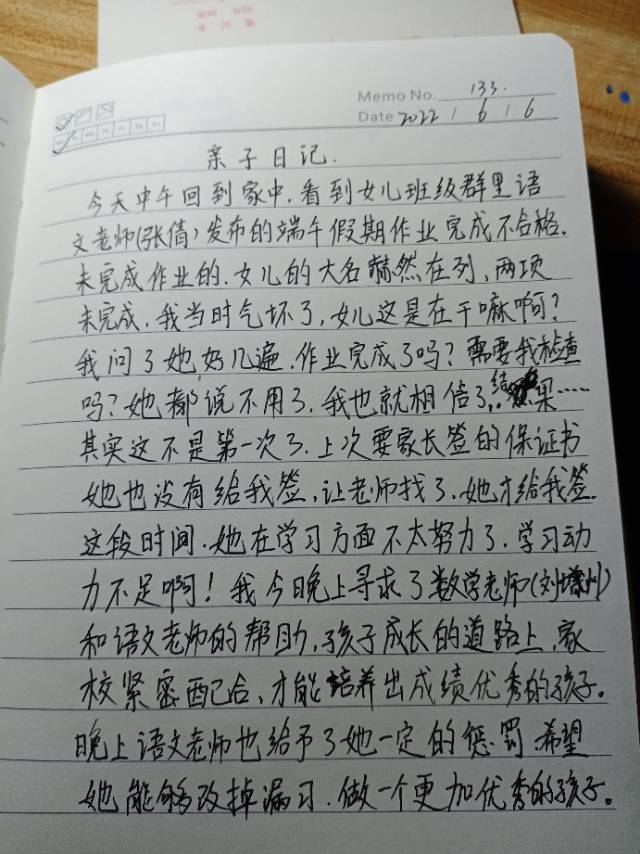 Memo No. 133.
Date 2022 / 6 / 6
亲子日记.
今天中午回到家中.看到女儿班级群里语
文老师(张倩)发布的端午假期作业完成不合格.
未完成作业的.女儿的大名赫然在列,两项
未完成.我当时气坏了,女儿这是在干嘛啊?
我问了她好几遍.作业完成了吗?需要我检查
吗?她都说不用了.我也就相信了..结果……
其实这不是第一次了.上次要家长签的保证书
她也没有给我签,让老师找了.她才给我签.
这段时间.她在学习方面不太努力了.学习动
力不足啊!我今晚上寻求了数学老师(刘增州)
和语文老师的帮助,孩子成长的道路上,家
校紧密配合、才能培养出成绩优秀的孩子。
晚上语文老师也给予了她一定的惩罚.希望
她能够改掉漏习.做一个更加优秀的孩子。